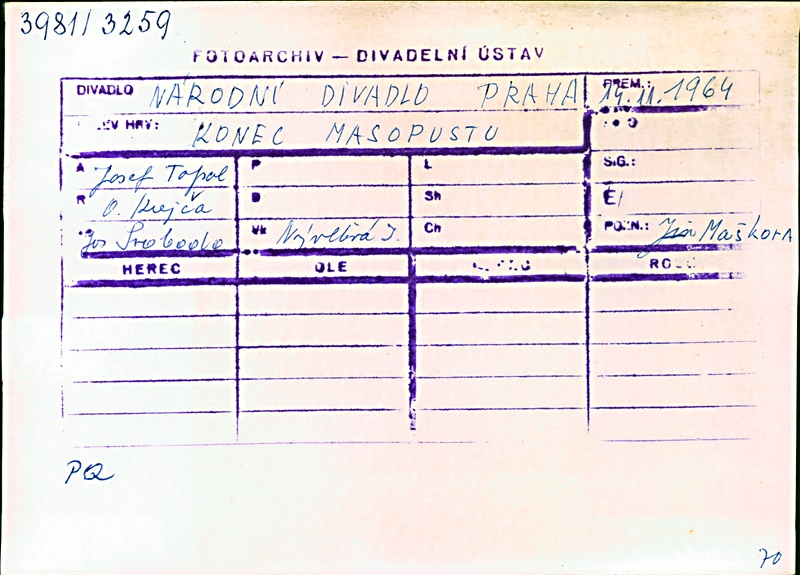 3981/3259
FOTOARCHIV — DIVADELNÍ ÚSTAV
DIVADLO NÁRODNÍ DIVADLO PRAHA PREM.: 14.11.1964
HRY: KONEC MASOPUSTU
A Josef Topol P L SIG.:
R O. Krejča D Sh É/
Jos Svoboda Vk Nývltová I. Ch POZN.: Jiří Maškora
HEREC OLE RO
PQ
70